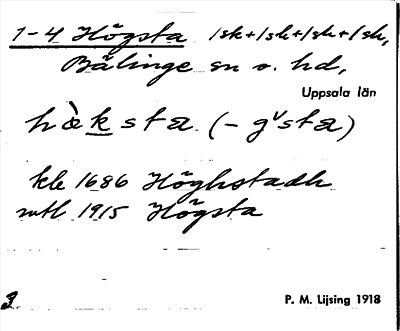 1-4 Högsta 1sk+1sk+1sk+1sk,
Bälinge sn o. hd,
Uppsala län
hàksta (-gsta)
kle 1686 Höghstadh
mtl 1915 Högsta
3.
P. M. Lijsing 1918